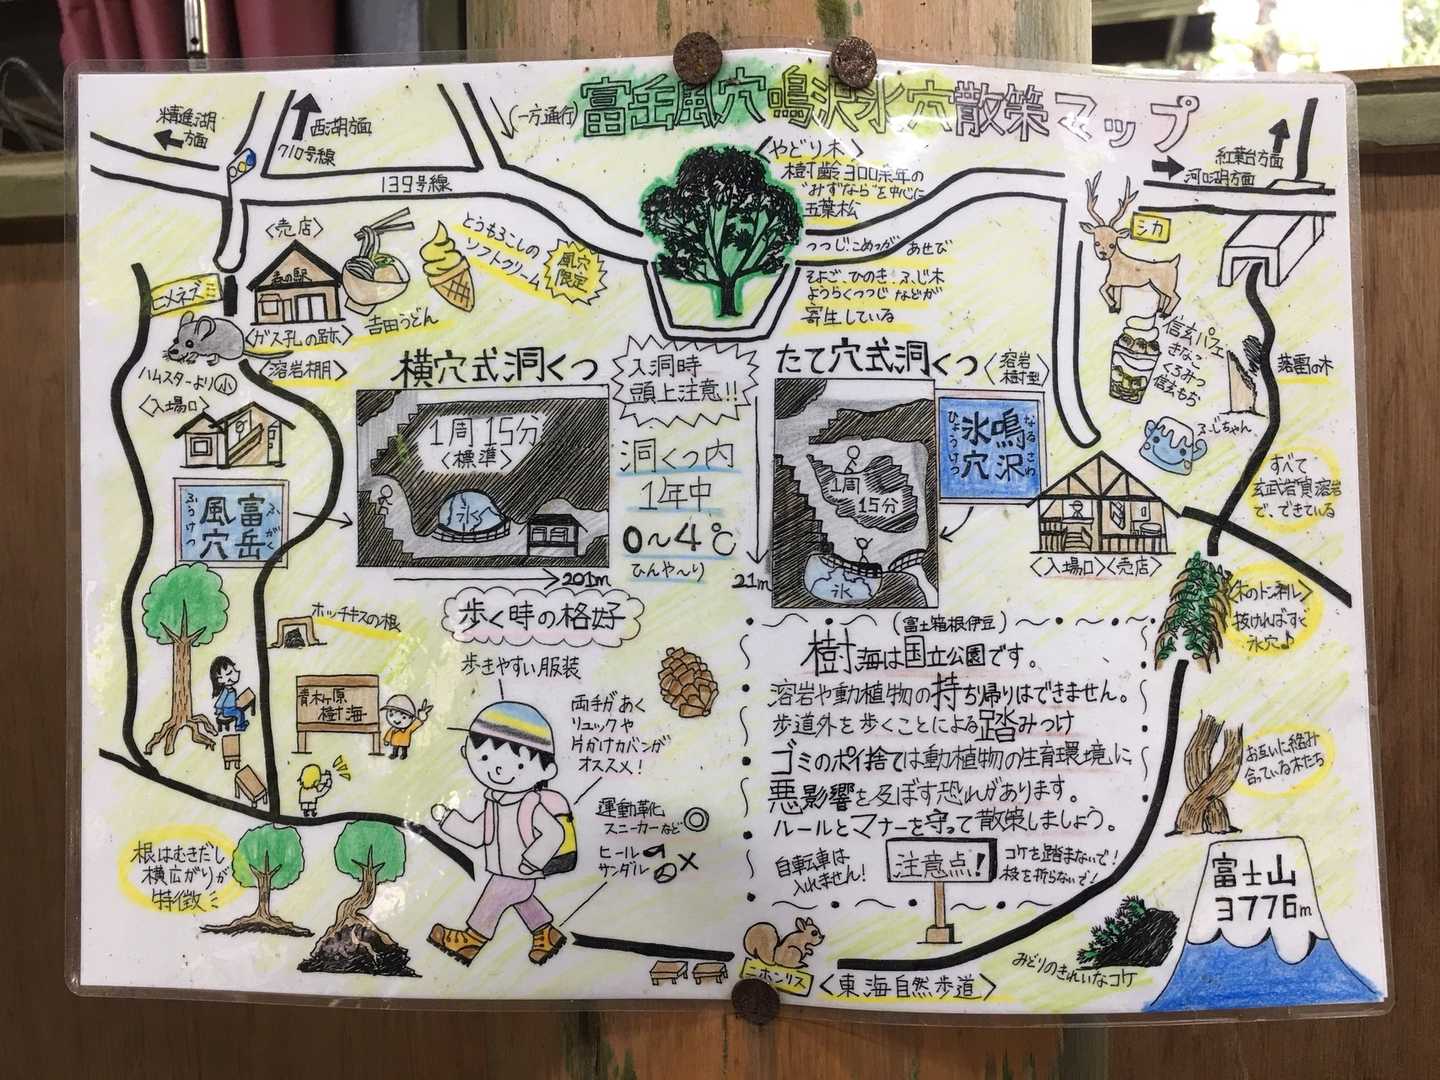 富岳風穴 鳴沢氷穴 散策マップ
(一方通行)
精進湖
方面
西湖方面
710号線
139号線
〈やどり木〉
樹齢300余年の
"みずなら"を中心に
五葉松
つつじ・こめつが あせび
そよご、ひのき、ふじ木
ようらくつつじ などが
寄生している
紅葉台方面
河口湖方面
シカ
〈売店〉
森の駅
とうもろこしの
ソフトクリーム
風穴
限定
吉田うどん
ヒメネズミ
ハムスターより小
〈ガス孔の跡〉
〈溶岩棚〉
〈入場口〉
富岳
風穴
ふがく
ふうけつ
横穴式洞くつ
1周15分
〈標準〉
氷
201m
入洞時
頭上注意!!
洞くつ内
1年中
0〜4℃
ひんや〜り
たて穴式洞くつ
〈溶岩
樹型〉
1周
15分
氷
21m
鳴沢
氷穴
なるさわ
ひょうけつ
信玄パフェ
きなこ
くろみつ
信玄もち
ふじちゃん
落雷の木
すべて
玄武岩質溶岩
で、できている
〈入場口〉〈売店〉
〈木のトンネル〉
抜ければすぐ
氷穴♪
お互いに絡み
合っている木たち
ホッチキスの根
青木ヶ原
樹海
根はむきだし
横広がりが
特徴
歩く時の格好
歩きやすい服装
両手があく
リュックや
片かけカバンが
オススメ!
運動靴
スニーカーなど◎
ヒール
サンダル
×
(富士箱根伊豆)
樹海は国立公園です。
溶岩や動植物の持ち帰りはできません。
歩道外を歩くことによる踏みつけ
ゴミのポイ捨ては動植物の生育環境に
悪影響を及ぼす恐れがあります。
ルールとマナーを守って散策しましょう。
自転車は
入れません!
注意点!
コケを踏まないで!
枝を折らないで!
ニホンリス
〈東海自然歩道〉
みどりのきれいなコケ
富士山
3776m